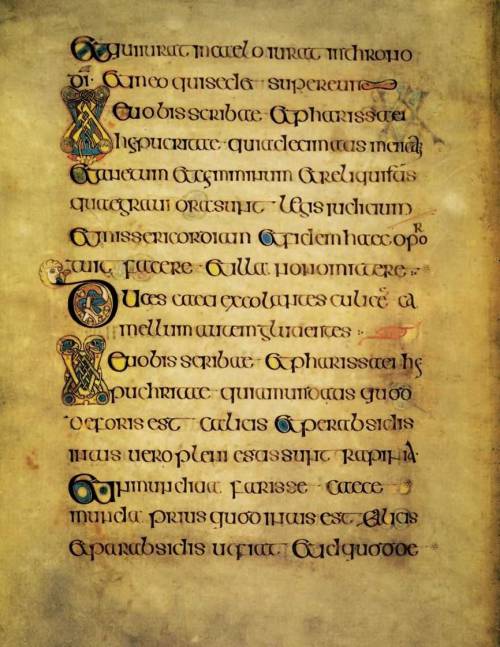 Et qui iurat in caelo iurat in throno
di · Et in eo qui sedet super eum
Uae uobis scribae · Et pharissaei
hypucritae · quia decimatis mentam
Et anetum · Et cyminum · Et reliquistis
quae grauiora sunt · legis iudicium
Et misericordiam · Et fidem haec opor
tuit facere · Et illa non omittere :·
Duces caeci excolantes culicē ca
mellum autem glutientes :·
Uae uobis scribae · Et pharissaei hy
puchritae · quia mundatis quod
deforis est calicis Et perabsidis
intus uero pleni estis sunt rapina ·
Et inmunditia farisse caece
munda prius quod intus est calicis
Et parabsidis ut fiat Et id quod de